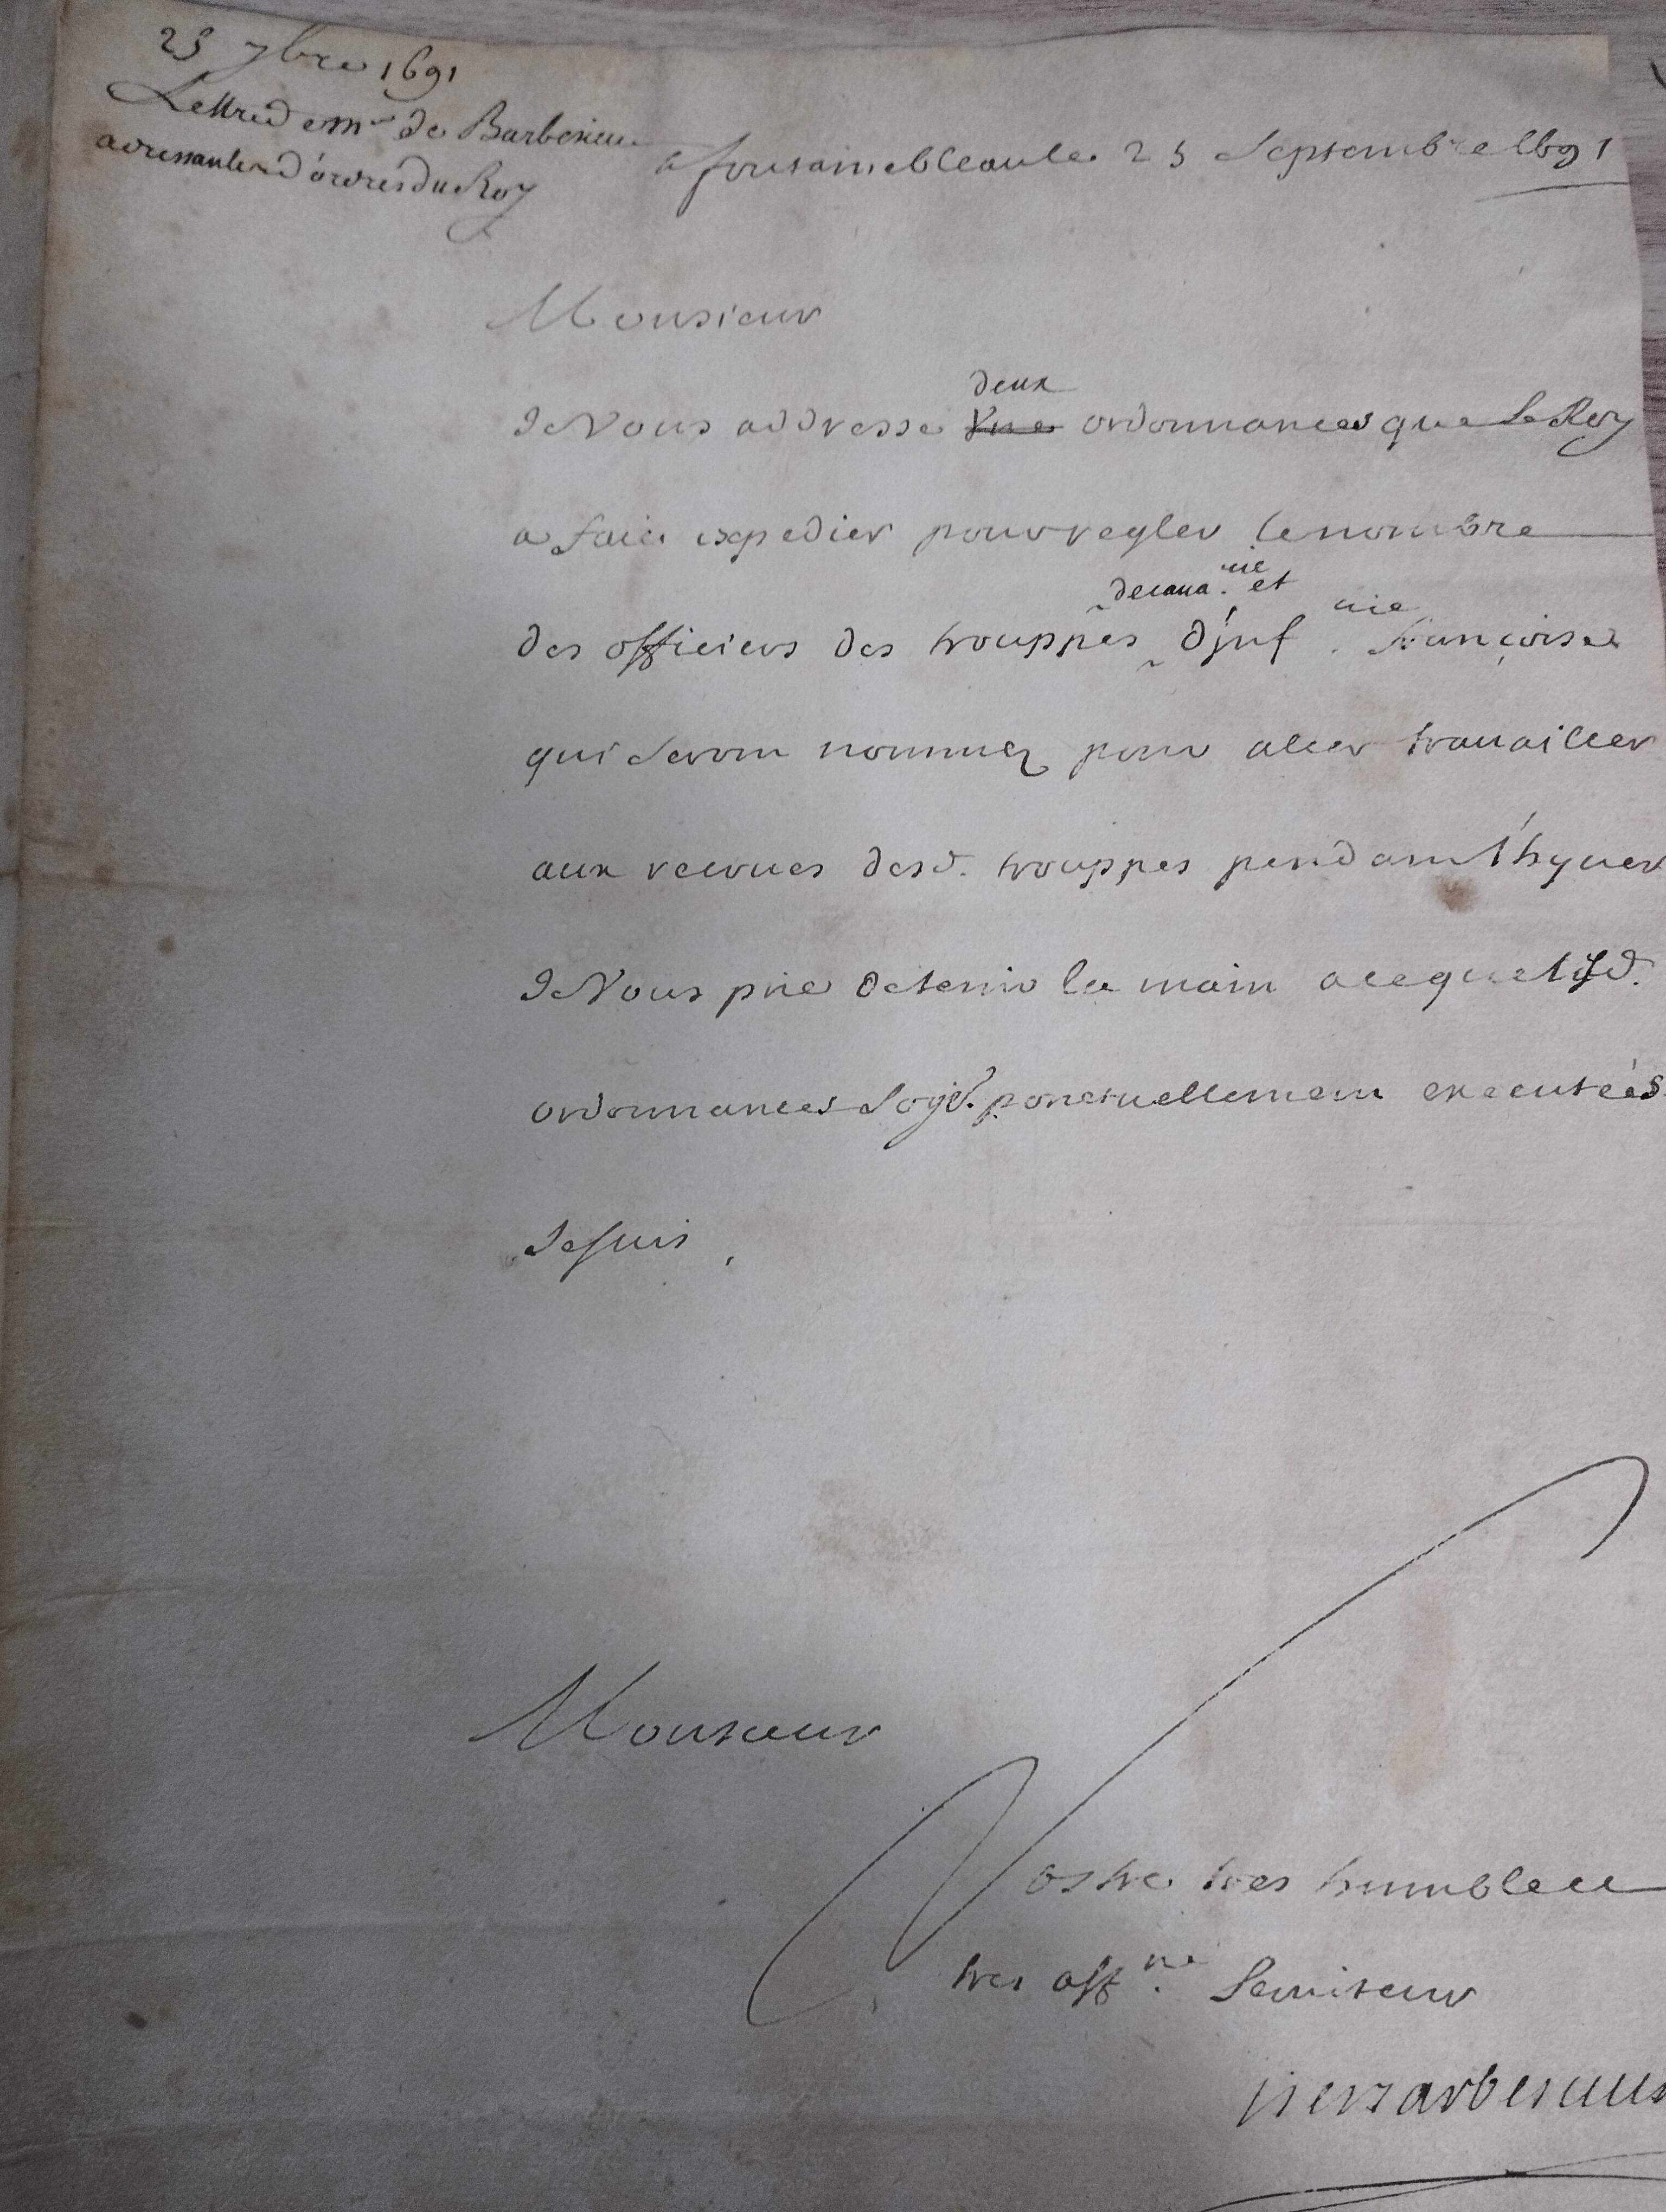 23 7bre 1691
Lettre de mr de Barbesieux
adressante d'ordres du Roy
a fontainebleau le 23 Septembre 1691
Monsieur
deux
Je Vous addresse Vne ordonnances que le Roy
a fait expedier pour regler le nombre
de caua.rie et
des officiers des trouppes d'jnf.rie françoise
qui seront nommez pour aller trauailler
aux reveues desd. trouppes pendant l'hyuer
Je Vous prie de tenir la main a ce que lesd.
ordonnances soyt. ponctuellement executées
Je suis,
Monsieur
Vostre tres humble et
tres aff.né Seruiteur